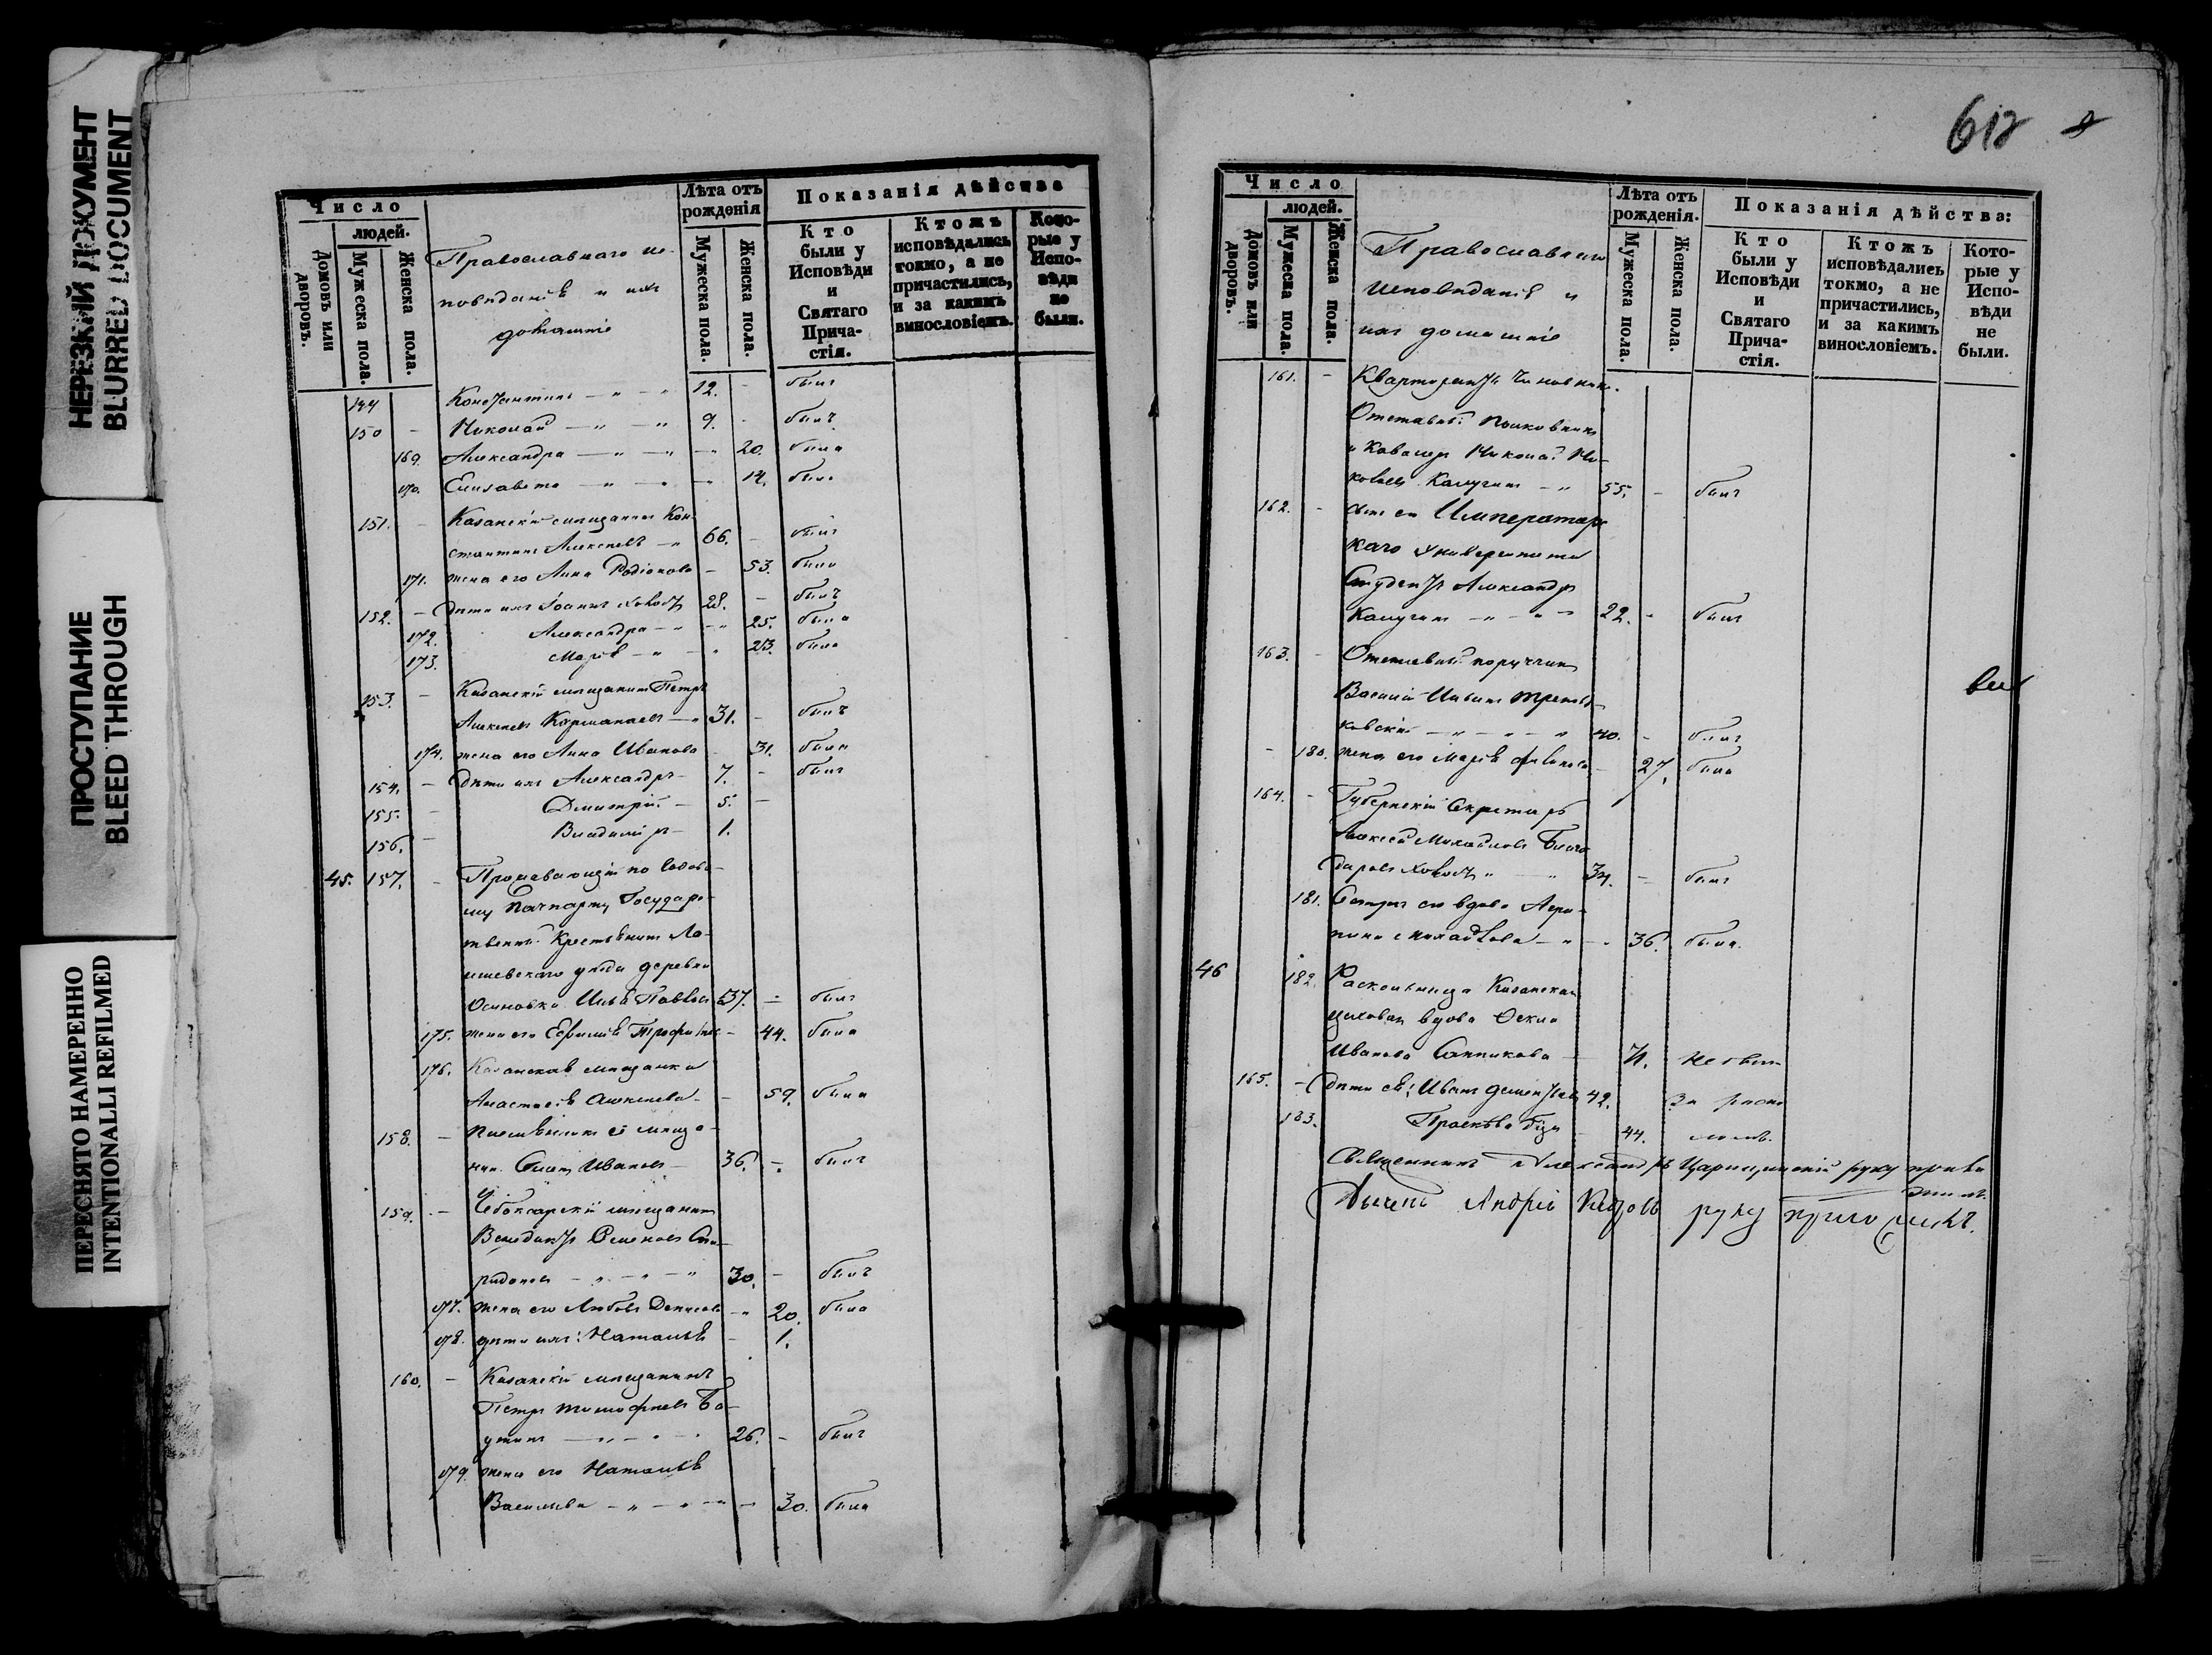 НЕРЕЗКИЙ ДОКУМЕНТ
BLURRED DOCUMENT
ПРОСТУПАНИЕ
BLEED THROUGH
ПЕРЕСНЯТО НАМЕРЕННО
INTENTIONALLI REFILMED
Число
людей.
Домовъ или дворовъ.
Мужеска пола.
Женска пола.
Православнаго ис-
повѣданія и ихъ
домашніе
Лѣта отъ рожденія
Мужеска пола.
Женска пола.
Показанія дѣйства
Кто были у Исповѣди и Святаго Прича-стія.
Ктожъ исповѣдались токмо, а не причастились, и за какимъ винословіемъ.
Кото-рые у Испо-вѣди не были.
149 Константинъ 12. - былъ
150 - Николай 9. - былъ
169. Александра 20. была
170. Елизавета 14. была
151. - Казанскій мещанинъ Кон-
стантинъ Алексѣевъ 66. - былъ
171. жена его Анна Родіонова - 53. была
152. - дѣти ихъ Іоаннъ холостъ 28. - былъ
172. Александра 25. была
173. Марія 23. была
153. - Казанскій мещанинъ Петръ
Алексѣевъ 31. - былъ
174. жена его Анна Иванова - 31. была
154. - дѣти ихъ Александръ 7. - былъ
155. - Дмитрій 5. -
156. - Владиміръ 1.
45. 157. - Проживающій по
му Пачпорту Государ-
ственный Крестьянинъ Ла-
ишевскаго уѣзда деревни
Осиновки Илья Павловъ 57. - былъ
175. жена его Евфимія 44. была
176. Казанская мещанка
Анастасія Алексѣева - 59. была
158. - ея меща-
нин. Иванов 36. - былъ
159. - Чебоксарскій мещанинъ
Венедиктъ Семеновъ Спи-
ридонов 30. - былъ
177. жена его Любовь Денисова 20. была
178. дѣти ихъ: Наталья - 1.
160. - Казанскій мещанинъ
Петръ Тимофѣевъ
26. - былъ
179. жена его Наталья
Васильева 30. была
612
Число
людей.
Домовъ или дворовъ.
Мужеска пола.
Женска пола.
Православнаго
исповѣданія и
ихъ домашніе
Лѣта отъ рожденія.
Мужеска пола.
Женска пола.
Показанія дѣйства:
Кто были у Исповѣди и Святаго Прича-стія.
Ктожъ исповѣдались токмо, а не причастились, и за какимъ винословіемъ.
Кото-рые у Испо-вѣди не были.
161. -
Отставный Полковникъ
и Кавалеръ Николай Ни-
колаевъ Калугинъ 55. - былъ
162. - сынъ его Императорс
каго Университета
Студентъ Александръ
Калугинъ 22. - былъ
163. - Отставный поручикъ
Василій
40. - былъ
- 180. жена его Марія - 27. была
164. - Губернскій Секретарь
Алексѣй Михайловъ Благо
даровъ холостъ 34. - былъ
181. Сестра его вдова Агри-
пина Михайлова 36. была.
46 182. Раскольница Казанская
цеховая вдова
Иванова 71. не была
165. - дѣти ея: Иванъ 42. За раско
183. 44. ломъ.
Священникъ Александръ Царицынскій руку прило
жилъ.
Дьячекъ Андрей руку приложилъ.